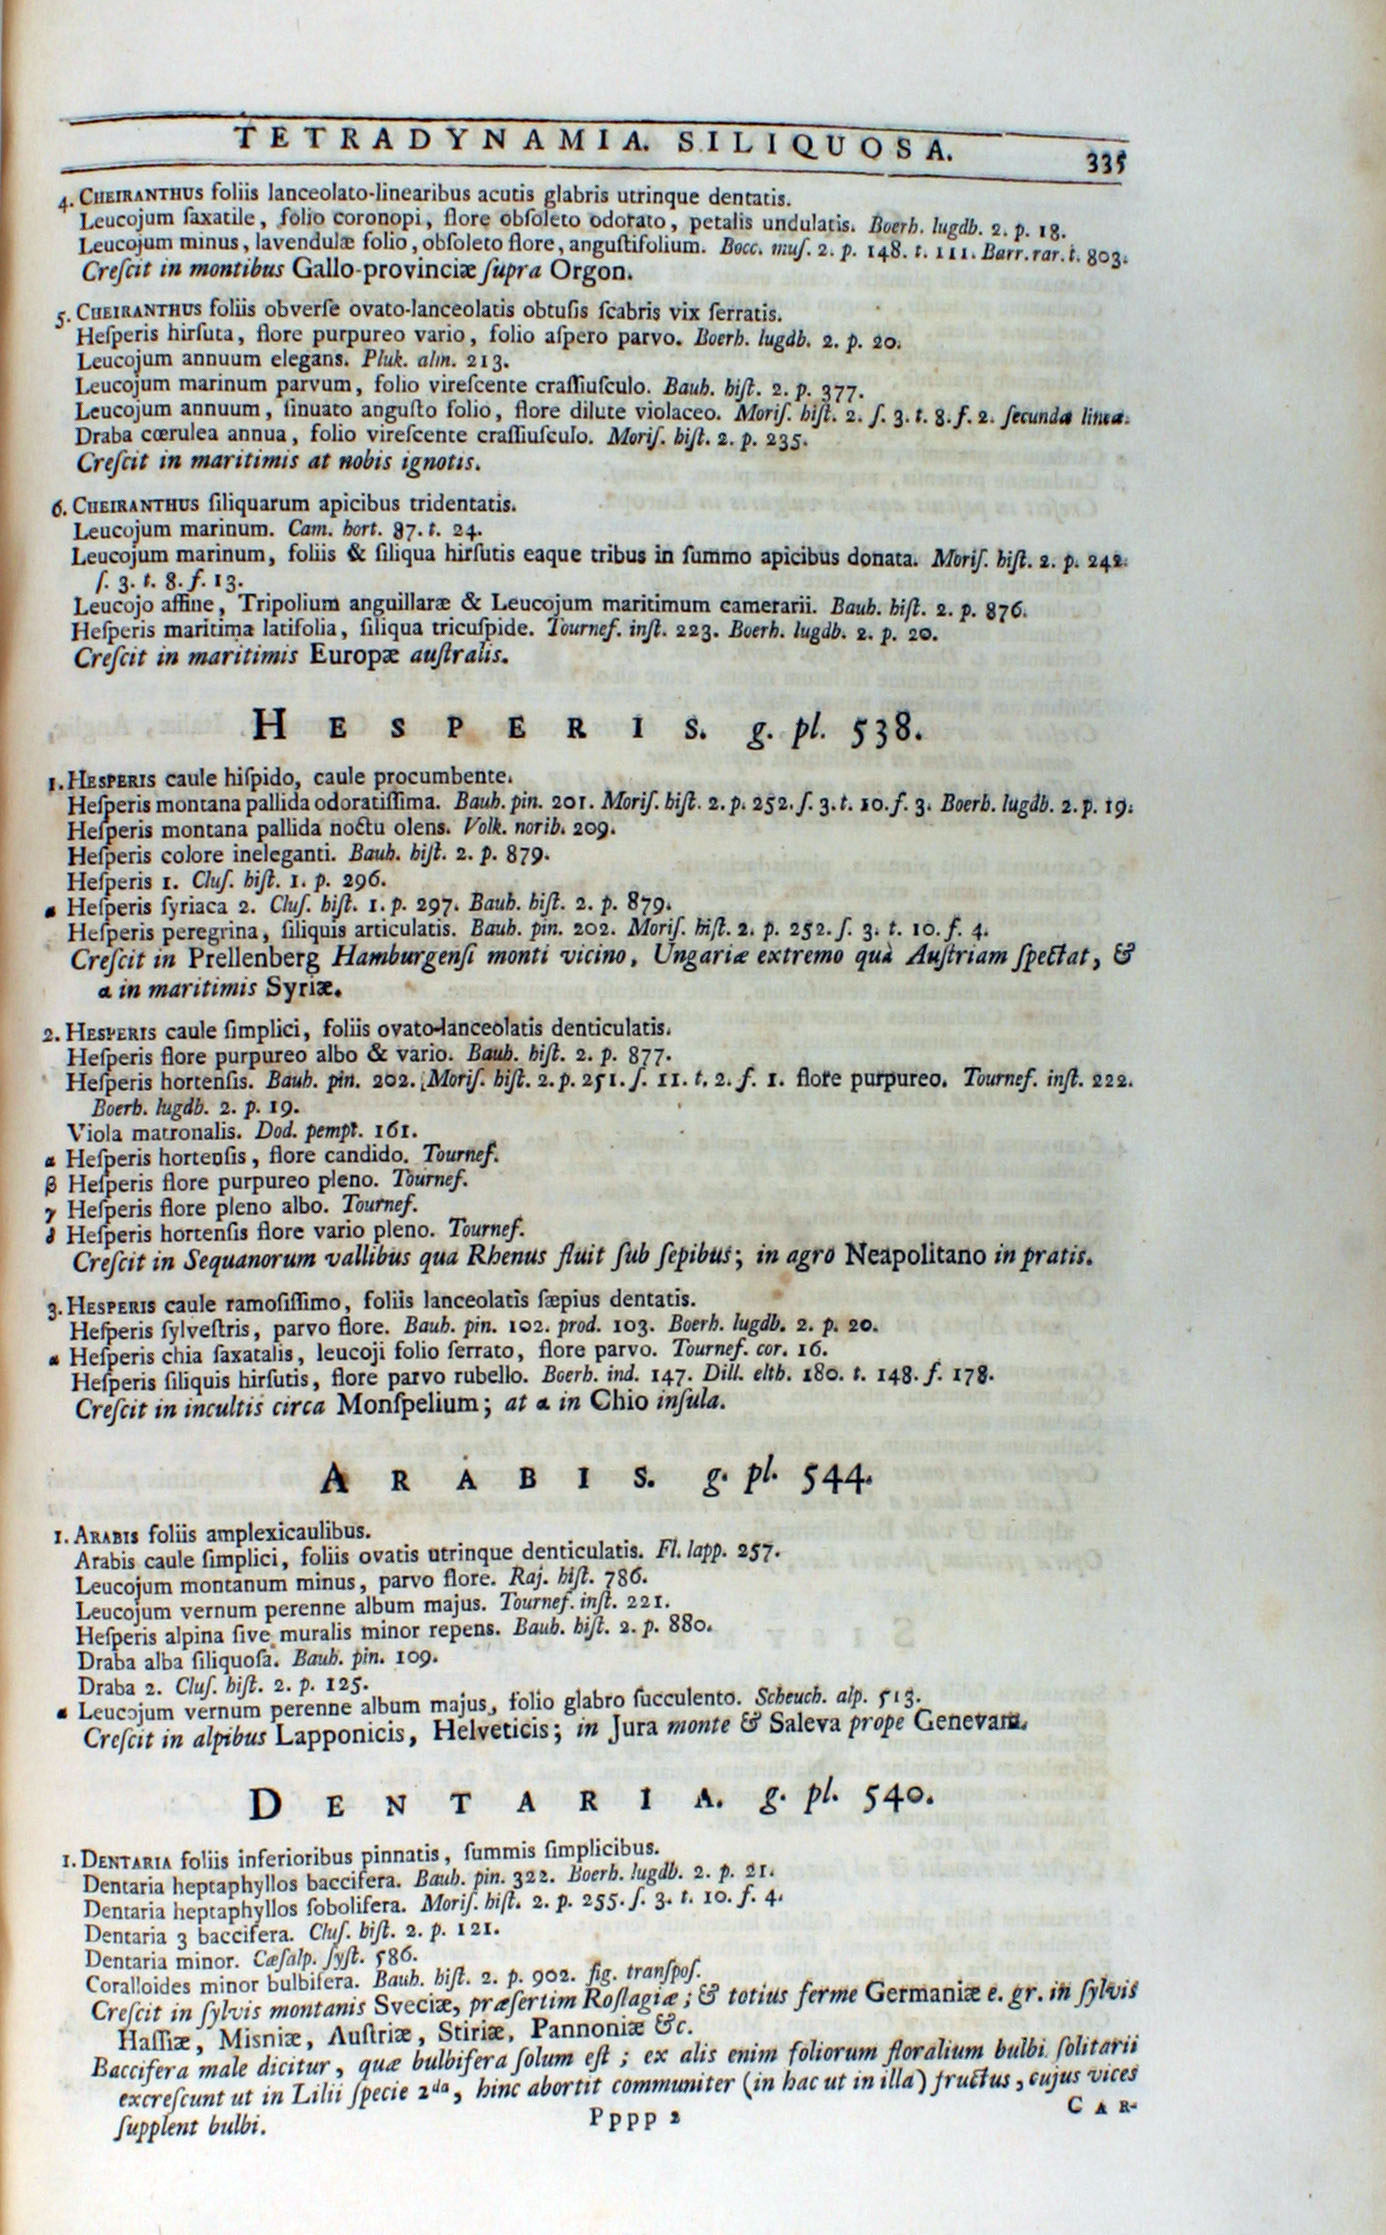 TETRADYNAMIA. SILIQUOSA. 335
4. CHEIRANTHUS foliis lanceolato-linearibus acutis glabris utrinque dentatis.
Leucojum ſaxatile, folio coronopi, flore obſoleto odorato, petalis undulatis. Boerh. lugdb. 2. p. 18.
Leucojum minus, lavendulæ folio, obſoleto flore, anguſtifolium. Bocc. muſ. 2. p. 148. t. 111. Barr. rar. t. 803.
Creſcit in montibus Gallo-provinciæ ſupra Orgon.
5. CHEIRANTHUS foliis obverſe ovato-lanceolatis obtuſis ſcabris vix ſerratis.
Heſperis hirſuta, flore purpureo vario, folio aſpero parvo. Boerh. lugdb. 2. p. 20.
Leucojum annuum elegans. Pluk. alm. 213.
Leucojum marinum parvum, folio vireſcente craſſiuſculo. Bauh. hiſt. 2. p. 377.
Leucojum annuum, ſinuato anguſto folio, flore dilute violaceo. Moriſ. hiſt. 2. ſ. 3. t. 8. f. 2. ſecunda linea.
Draba cœrulea annua, folio vireſcente craſſiuſculo. Moriſ. hiſt. 2. p. 235.
Creſcit in maritimis at nobis ignotis.
6. CHEIRANTHUS ſiliquarum apicibus tridentatis.
Leucojum marinum. Cam. hort. 87. t. 24.
Leucojum marinum, foliis & ſiliqua hirſutis eaque tribus in ſummo apicibus donata. Moriſ. hiſt. 2. p. 242.
ſ. 3. t. 8. f. 13.
Leucojo affine, Tripolium anguillaræ & Leucojum maritimum camerarii. Bauh. hiſt. 2. p. 876.
Heſperis maritima latifolia, ſiliqua tricuſpide. Tournef. inſt. 223. Boerh. lugdb. 2. p. 20.
Creſcit in maritimis Europæ auſtralis.
HESPERIS. g. pl. 538.
1. HESPERIS caule hiſpido, caule procumbente.
Heſperis montana pallida odoratiſſima. Bauh. pin. 201. Moriſ. hiſt. 2. p. 252. ſ. 3. t. 10. f. 3. Boerh. lugdb. 2. p. 19.
Heſperis montana pallida noctu olens. Volk. norib. 209.
Heſperis colore ineleganti. Bauh. hiſt. 2. p. 879.
Heſperis 1. Cluſ. hiſt. 1. p. 296.
α Heſperis ſyriaca 2. Cluſ. hiſt. 1. p. 297. Bauh. hiſt. 2. p. 879.
Heſperis peregrina, ſiliquis articulatis. Bauh. pin. 202. Moriſ. hiſt. 2. p. 252. ſ. 3. t. 10. f. 4.
Creſcit in Prellenberg Hamburgenſi monti vicino, Ungariæ extremo quà Auſtriam ſpectat, &
α in maritimis Syriæ.
2. HESPERIS caule ſimplici, foliis ovato-lanceolatis denticulatis.
Heſperis flore purpureo albo & vario. Bauh. hiſt. 2. p. 877.
Heſperis hortenſis. Bauh. pin. 202. Moriſ. hiſt. 2. p. 251. ſ. 11. t. 2. f. 1. flore purpureo. Tournef. inſt. 222.
Boerh. lugdb. 2. p. 19.
Viola matronalis. Dod. pempt. 161.
α Heſperis hortenſis, flore candido. Tournef.
β Heſperis flore purpureo pleno. Tournef.
γ Heſperis flore pleno albo. Tournef.
δ Heſperis hortenſis flore vario pleno. Tournef.
Creſcit in Sequanorum vallibus qua Rhenus fluit ſub ſepibus; in agro Neapolitano in pratis.
3. HESPERIS caule ramoſiſſimo, foliis lanceolatis ſæpius dentatis.
Heſperis ſylveſtris, parvo flore. Bauh. pin. 102. prod. 103. Boerh. lugdb. 2. p. 20.
α Heſperis chia ſaxatalis, leucoji folio ſerrato, flore parvo. Tournef. cor. 16.
Heſperis ſiliquis hirſutis, flore parvo rubello. Boerh. ind. 147. Dill. elth. 180. t. 148. f. 178.
Creſcit in incultis circa Monſpelium; at α in Chio inſula.
ARABIS. g. pl. 544.
1. ARABIS foliis amplexicaulibus.
Arabis caule ſimplici, foliis ovatis utrinque denticulatis. Fl. lapp. 257.
Leucojum montanum minus, parvo flore. Raj. hiſt. 786.
Leucojum vernum perenne album majus. Tournef. inſt. 221.
Heſperis alpina ſive muralis minor repens. Bauh. hiſt. 2. p. 880.
Draba alba ſiliquoſa. Bauh. pin. 109.
Draba 2. Cluſ. hiſt. 2. p. 125.
α Leucojum vernum perenne album majus, folio glabro ſucculento. Scheuch. alp. 513.
Creſcit in alpibus Lapponicis, Helveticis; in Jura monte & Saleva prope Genevam.
DENTARIA. g. pl. 540.
1. DENTARIA foliis inferioribus pinnatis, ſummis ſimplicibus.
Dentaria heptaphyllos baccifera. Bauh. pin. 322. Boerh. lugdb. 2. p. 21.
Dentaria heptaphyllos ſobolifera. Moriſ. hiſt. 2. p. 255. ſ. 3. t. 10. f. 4.
Dentaria 3 baccifera. Cluſ. hiſt. 2. p. 121.
Dentaria minor. Cæſalp. ſyſt. 586.
Coralloides minor bulbifera. Bauh. hiſt. 2. p. 902. fig. tranſpoſ.
Creſcit in ſylvis montanis Sveciæ, præſertim Roſlagiæ; & totius ferme Germaniæ e. gr. in ſylvis
Haſſiæ, Misniæ, Auſtriæ, Stiriæ, Pannoniæ &c.
Baccifera male dicitur, quæ bulbifera ſolum eſt; ex alis enim foliorum floralium bulbi ſolitarii
excreſcunt ut in Lilii ſpecie 2da, hinc abortit communiter (in hac ut in illa) fructus, cujus vices
ſupplent bulbi.
Pppp 2 CAR-